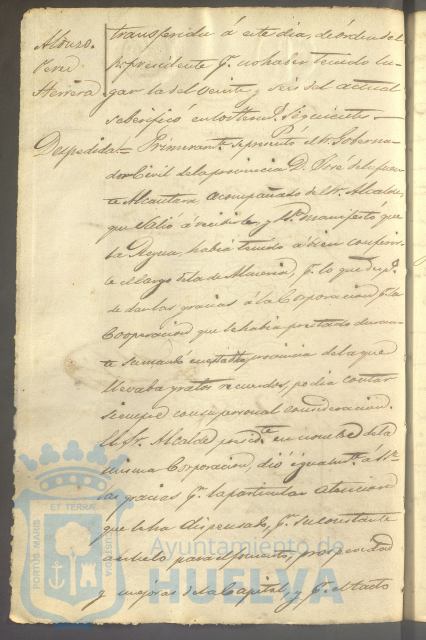 Alonso.
Herrera
transferida á este dia, de órden del
Sr. presidente pr. no haber tenido lu-
gar la del veinte y seis del actual
se berificó en los térms. siguientes.
Despedida.= Primeramte. se presentó el Sr. Goberna-
dor Civil de la provincia D. José de la
Alcantara acompañado del Sr. Alcalde,
que salió á recibirle, y manifestó que
la Reyna, habia tenido á bien conferir-
le el cargo de la de Almeria, pr. lo que
se daba las gracias á la Corporacion pr. la
Cooperacion que le habia prestado duran-
te su mando en esta provincia de la que
llevaba gratos recuerdos, podia contar
siempre con su personal consideracion.
El Sr. Alcalde presidte. en nombre de la
misma Corporacion, dió igualmte. á S.
las gracias pr. la particular atencion
que le ha dispensado, pr. su constante
anhelo para el fomento, prosperidad
y mejoras de la Capital, y pr. el tacto
PORTUS MARIS ET TERRAE CUSTODIA
Ayuntamiento de
HUELVA